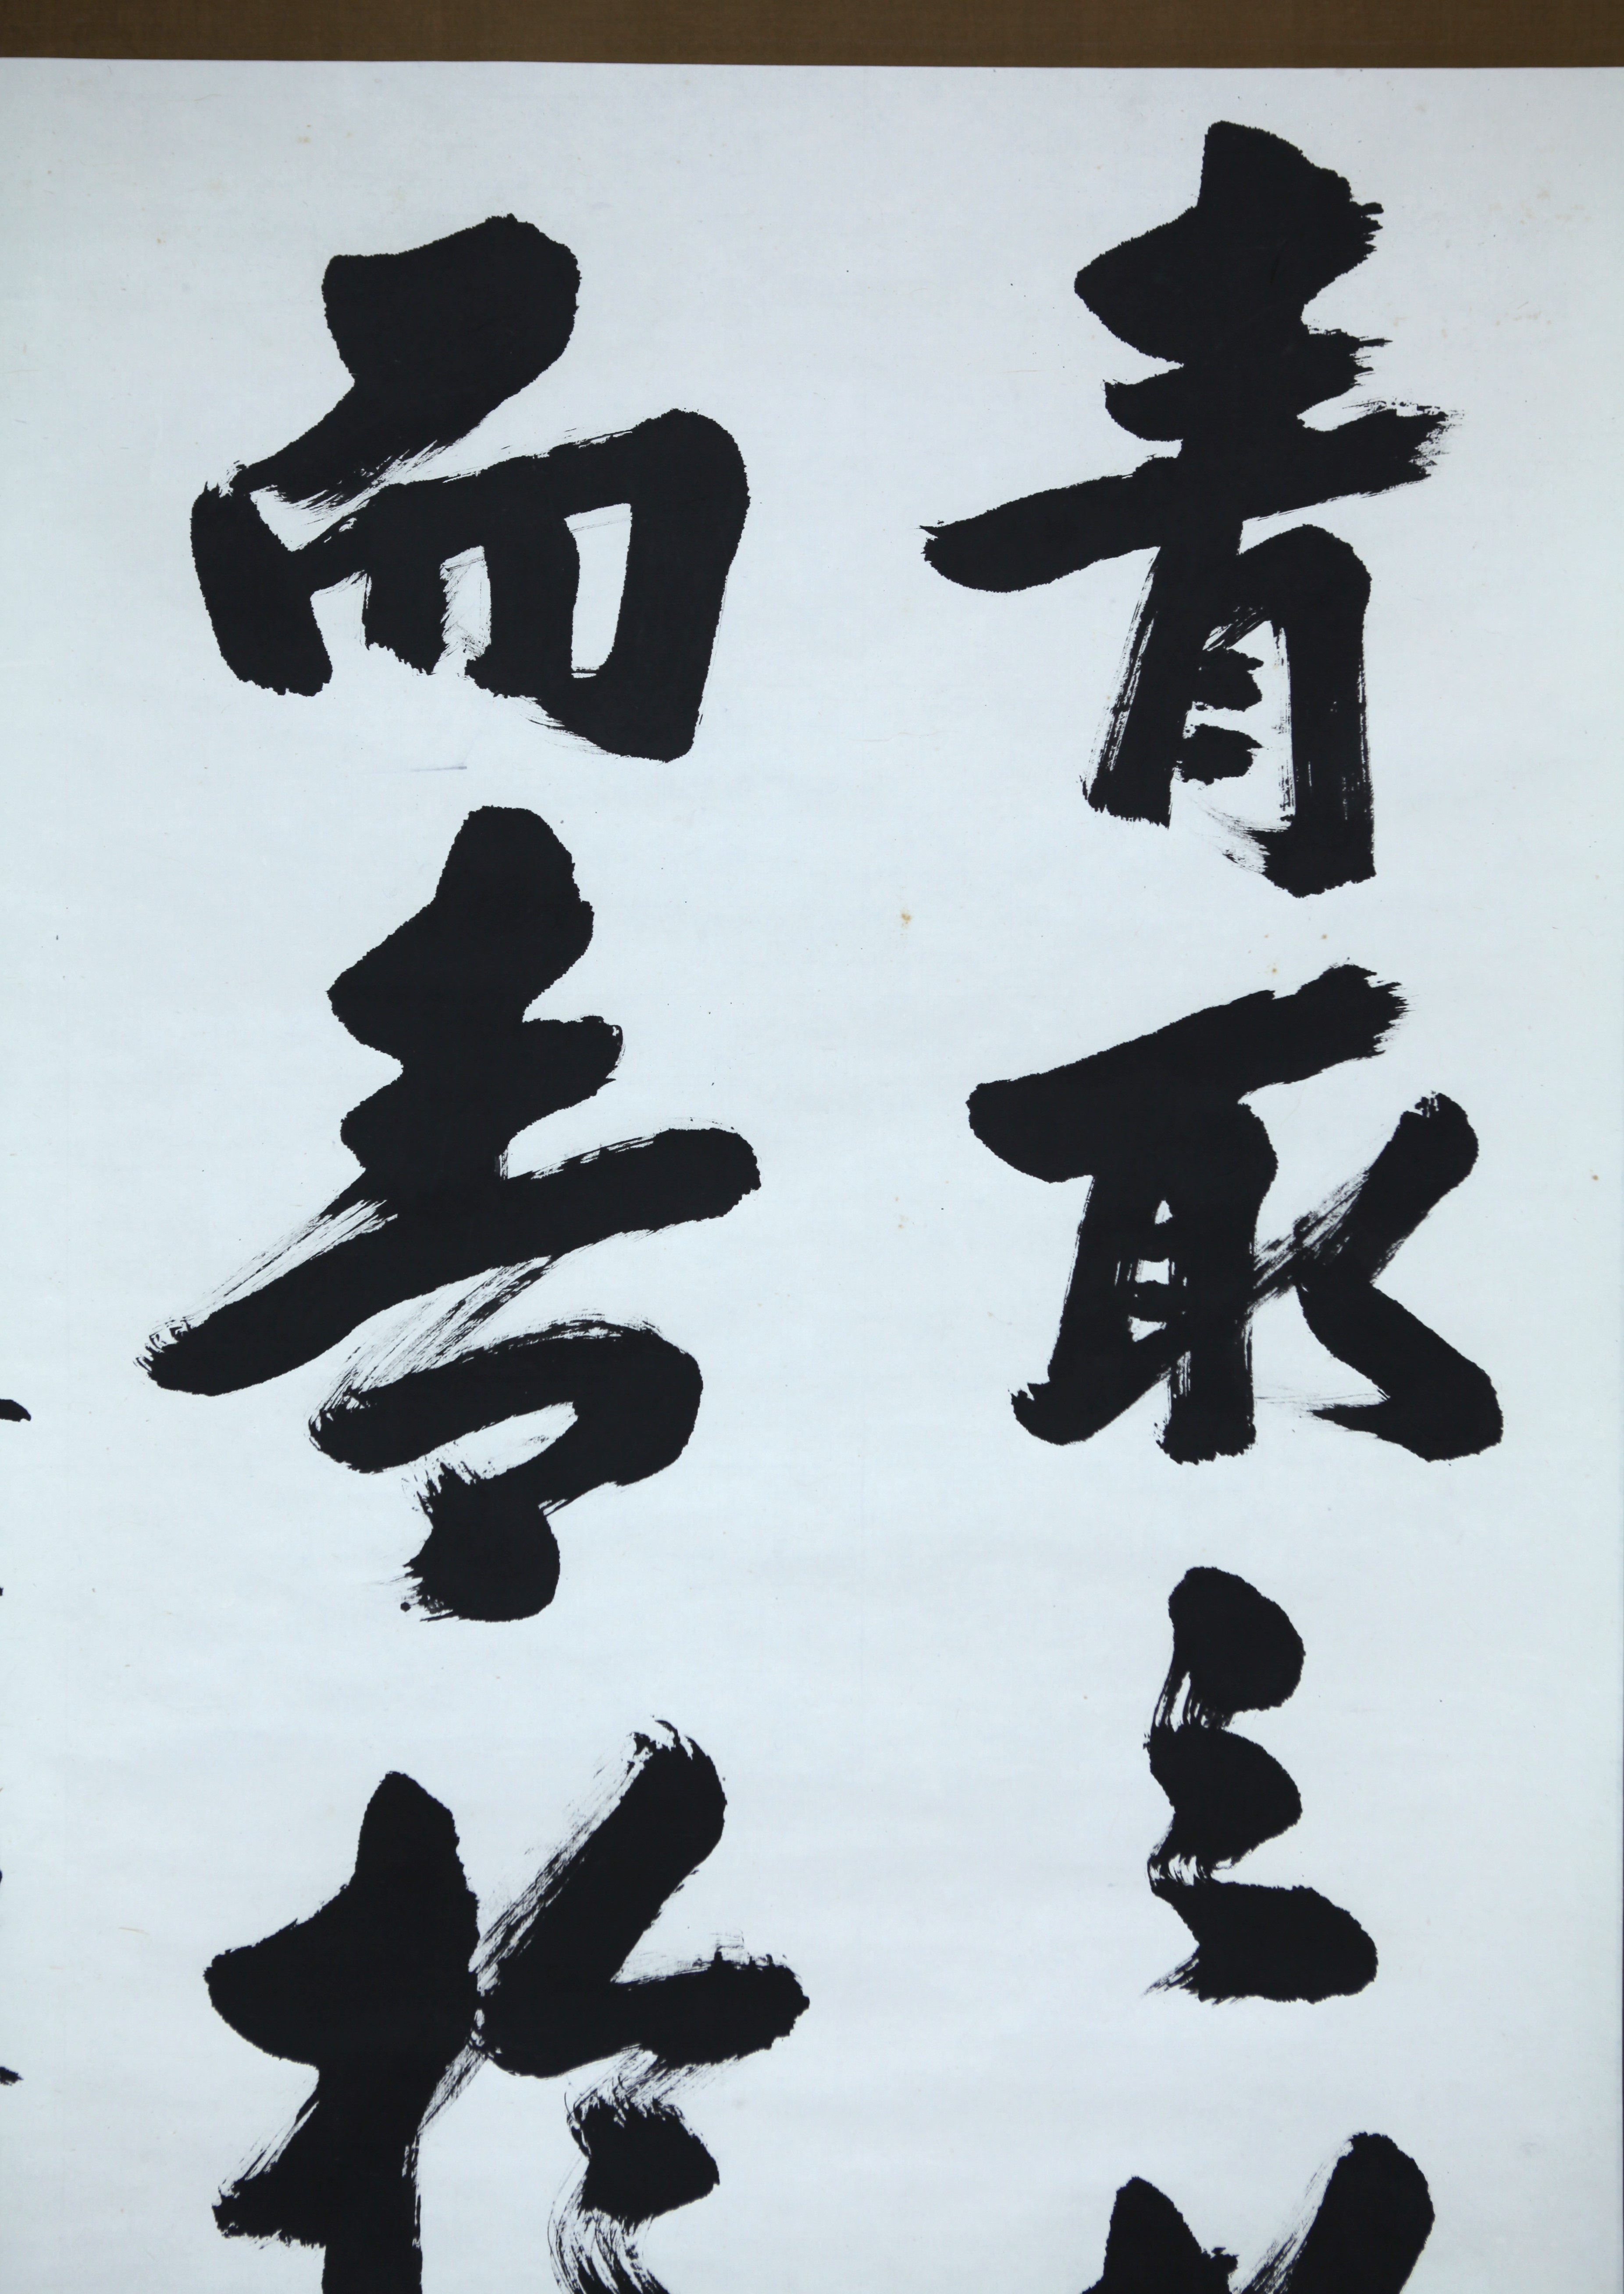 青取之
而青於